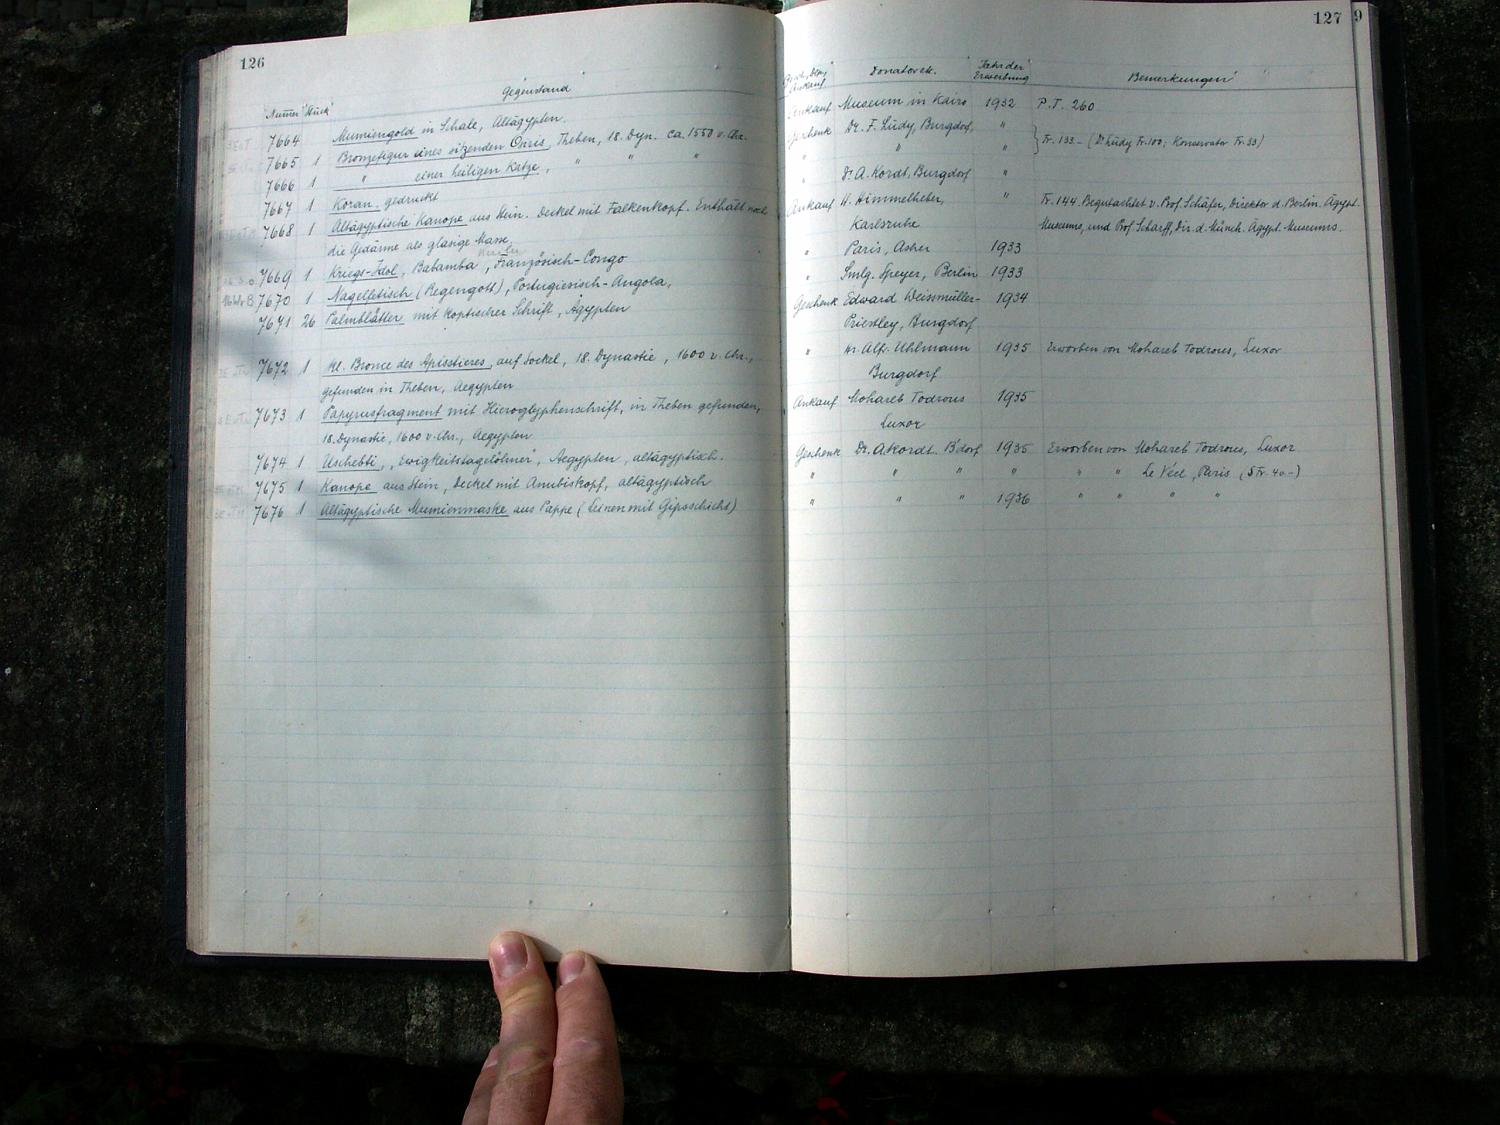 126
Numer Stück Gegenstand
7664 Mumiengold in Schale, Altägypten.
7665 1 Bronzefigur eines sitzenden Osiris, Theben, 18. Dyn. ca. 1550 v. Chr.
7666 1 " einer heiligen Katze, " " "
7667 1 Koran gedruckt
7668 1 Altägyptische Kanope aus Stein. Deckel mit Falkenkopf. Enthält noch
die Gedärme als glasige Masse,
7669 1 Kriegs-Idol, Babamba, Französisch-Congo
7670 1 Nagelfetisch (Regengott), Portugiesisch-Angola,
7671 26 Palmblätter mit koptischer Schrift, Ägypten
7672 1 Kl. Bronce des Apisstieres, auf Sockel, 18. Dynastie, 1600 v. Chr.,
gefunden in Theben, Aegypten
7673 1 Papyrusfragment mit Hieroglyphenschrift, in Theben gefunden,
18. Dynastie, 1600 v. Chr., Aegypten
7674 1 Uschebti, "Ewigkeitstagelöhner", Aegypten, altägyptisch.
7675 1 Kanope aus Stein, Deckel mit Anubiskopf, altägyptisch
7676 1 Altägyptische Mumienmaske aus Pappe (Leinen mit Gipsschicht)
127
9
Ankauf Donator etc. Jahr der Erwerbung Bemerkungen
Ankauf Museum in Kairo 1932 P.T. 260
Geschenk Dr. F. Lüdy, Burgdorf, "
" " " Fr. 133.- (Dr. Lüdy Fr. 100; Konservator Fr. 33)
" Dr. A. Kordt, Burgdorf "
Ankauf H. Himmelheber, " Fr. 144. Begutachtet v. Prof. Schäfer, Direktor d. Berlin. Ägypt.
Karlsruhe Museums, und Prof. Scharff, Dir. d. Münch. Ägypt. Museums.
" Paris, Asher 1933
" Smlg. Speyer, Berlin 1933
Geschenk Edward Weismüller- 1934
Priestley, Burgdorf
" Hr. Alf. Uhlmann 1935 Erworben von Mohareb Todrous, Luxor
Burgdorf
Ankauf Mohareb Todrous 1935
Luxor
Geschenk Dr. A. Kordt B'dorf 1935 Erworben von Mohareb Todrous, Luxor
" " " " " " Le Véel, Paris (SFr. 40.-)
" " " 1936 " " " "